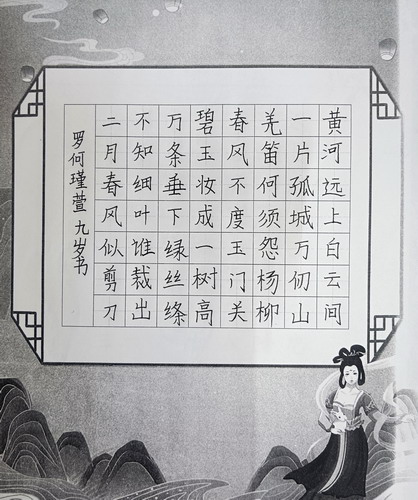 黄河远上白云间
一片孤城万仞山
羌笛何须怨杨柳
春风不度玉门关
碧玉妆成一树高
万条垂下绿丝绦
不知细叶谁裁出
二月春风似剪刀
罗何瑾萱 九岁书